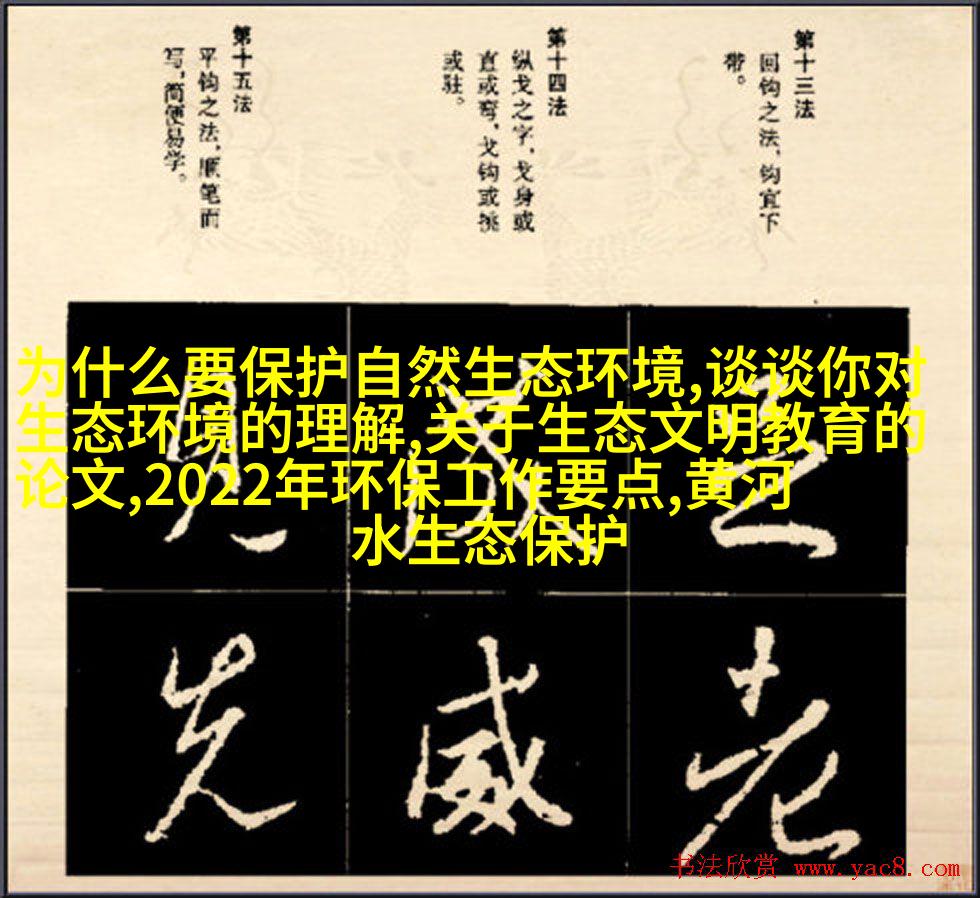 第十三法
回钩之法,钩宜下
带。
第十四法
纵戈之字,戈身或
直或弯,戈钩或挑
或驻。
第十五法
平钩之法,顺笔而
写,简便易学。
为什么要保护自然生态环境,谈谈你对
生态环境的理解,关于生态文明教育的
论文,2022年环保工作要点,黄河
水生态保护
老
威
先
书法欣赏 www.yac8.com